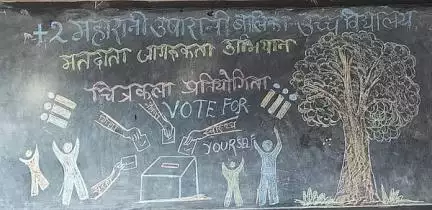 +2 महारानी उषारानी बालिका उच्च विद्यालय
मतदाता जागरूकता अभियान
चित्रकला प्रतियोगिता
VOTE FOR
YOURSELF